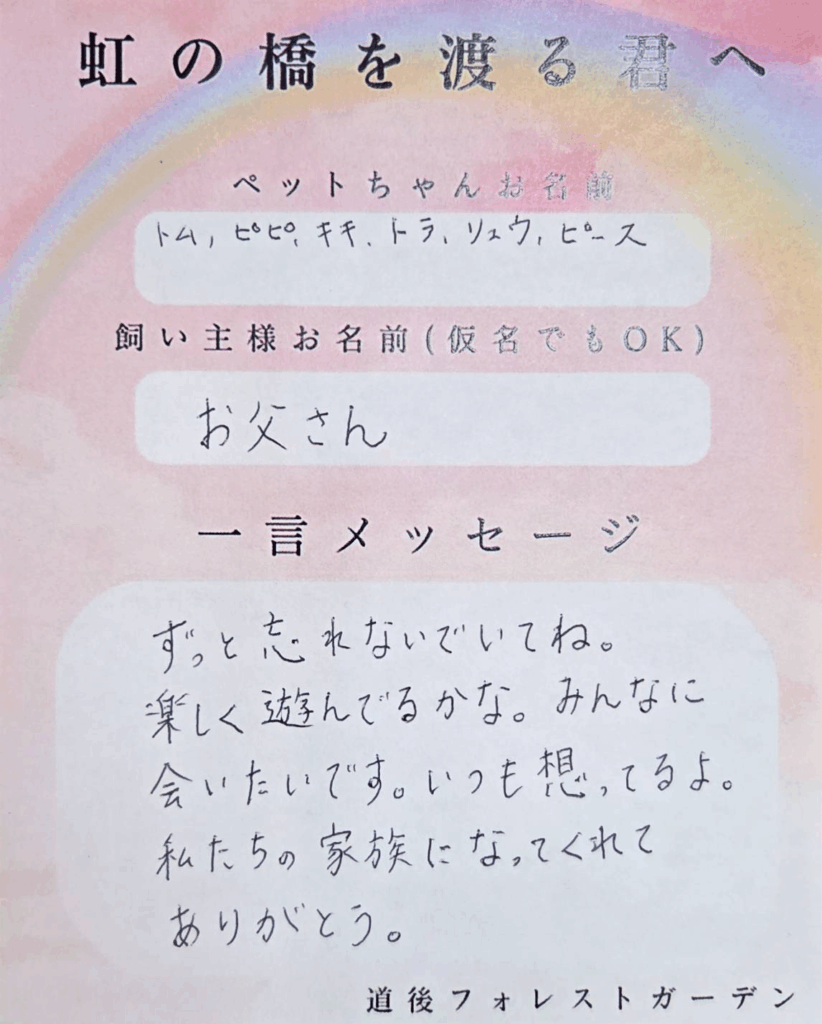 虹の橋を渡る君へ
ペットちゃんお名前
トム, ピピ, キキ、トラ、リュウ, ピース
飼い主様お名前(仮名でもOK)
お父さん
一言メッセージ
ずっと忘れないでいてね。
楽しく遊んでるかな。みんなに
会いたいです。いつも想ってるよ。
私たちの家族になってくれて
ありがとう。
道後フォレストガーデン